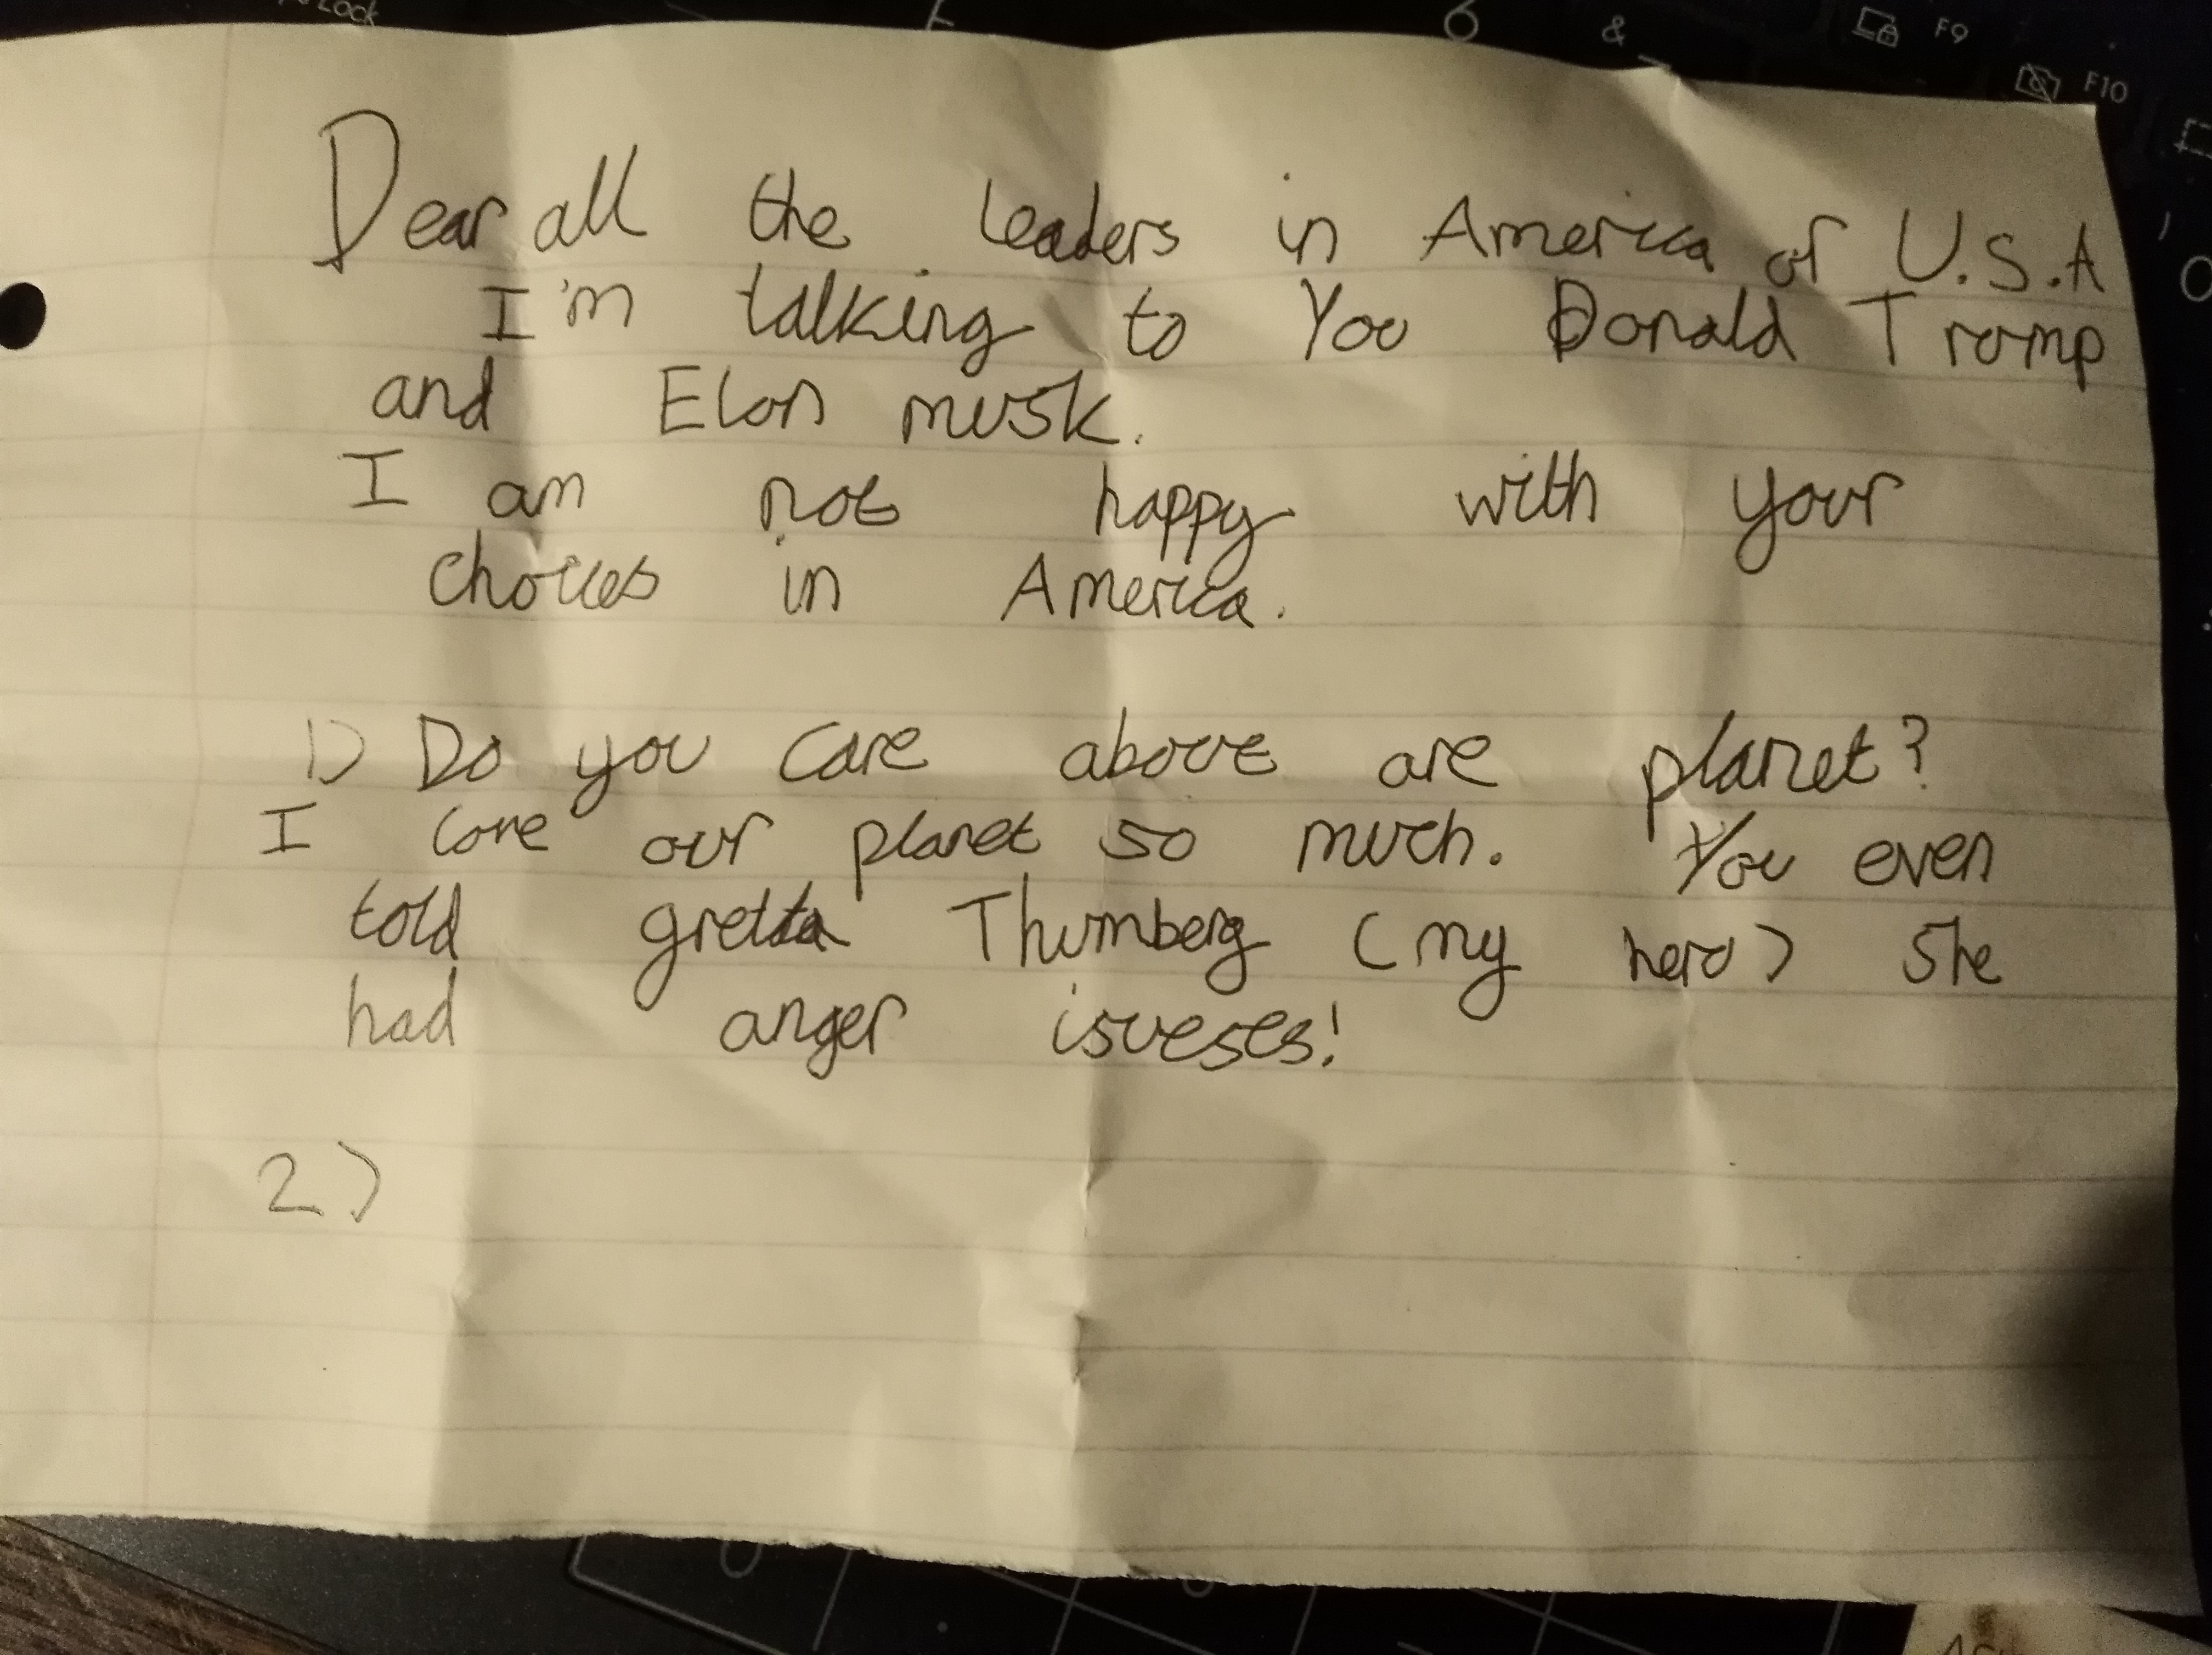 Lock
6
&
F9
F10
Dear all the leaders in America or U.S.A
I'm talking to You Donald Trump
and Elon musk.
I am not happy with your
choices in America.
1) Do you care above are planet?
I care our planet so much. You even
told gretta Thurnberg (my hero) she
had anger isueses!
2)